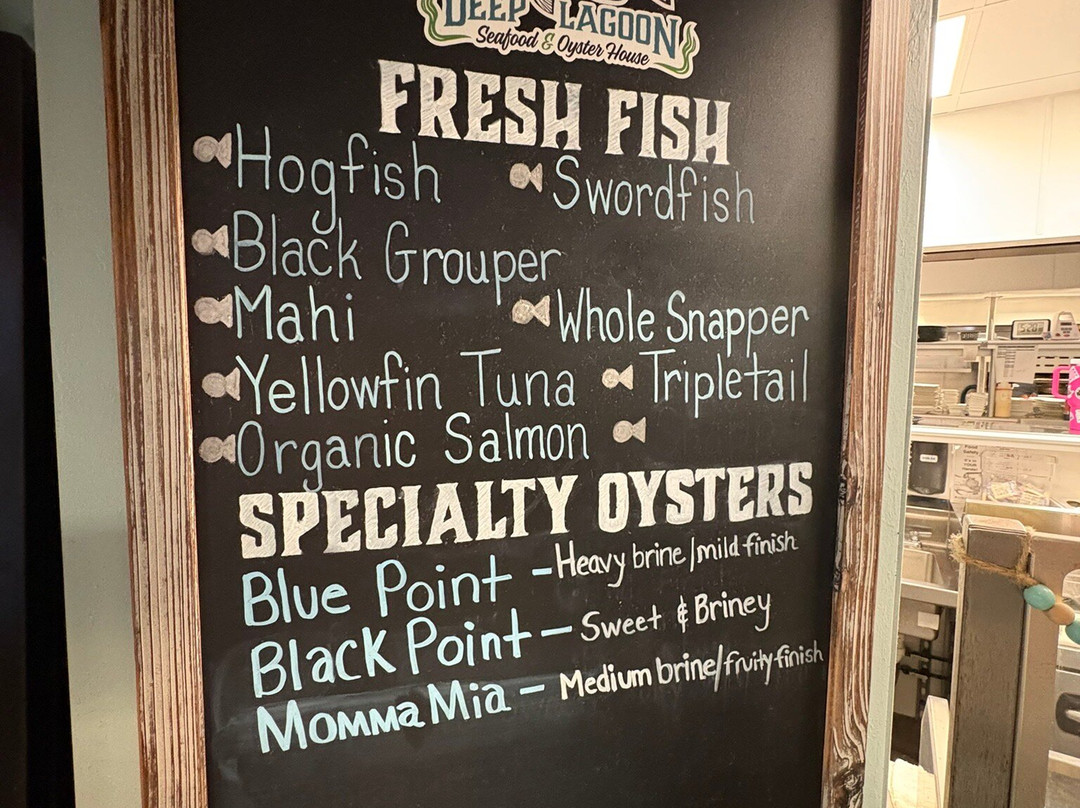 DEEP LAGOON
Seafood & Oyster House
FRESH FISH
Hogfish Swordfish
Black Grouper
Mahi Whole Snapper
Yellowfin Tuna Tripletail
Organic Salmon
SPECIALTY OYSTERS
Blue Point - Heavy brine/mild finish
Black Point - Sweet & Briney
Momma Mia - Medium brine/fruity finish